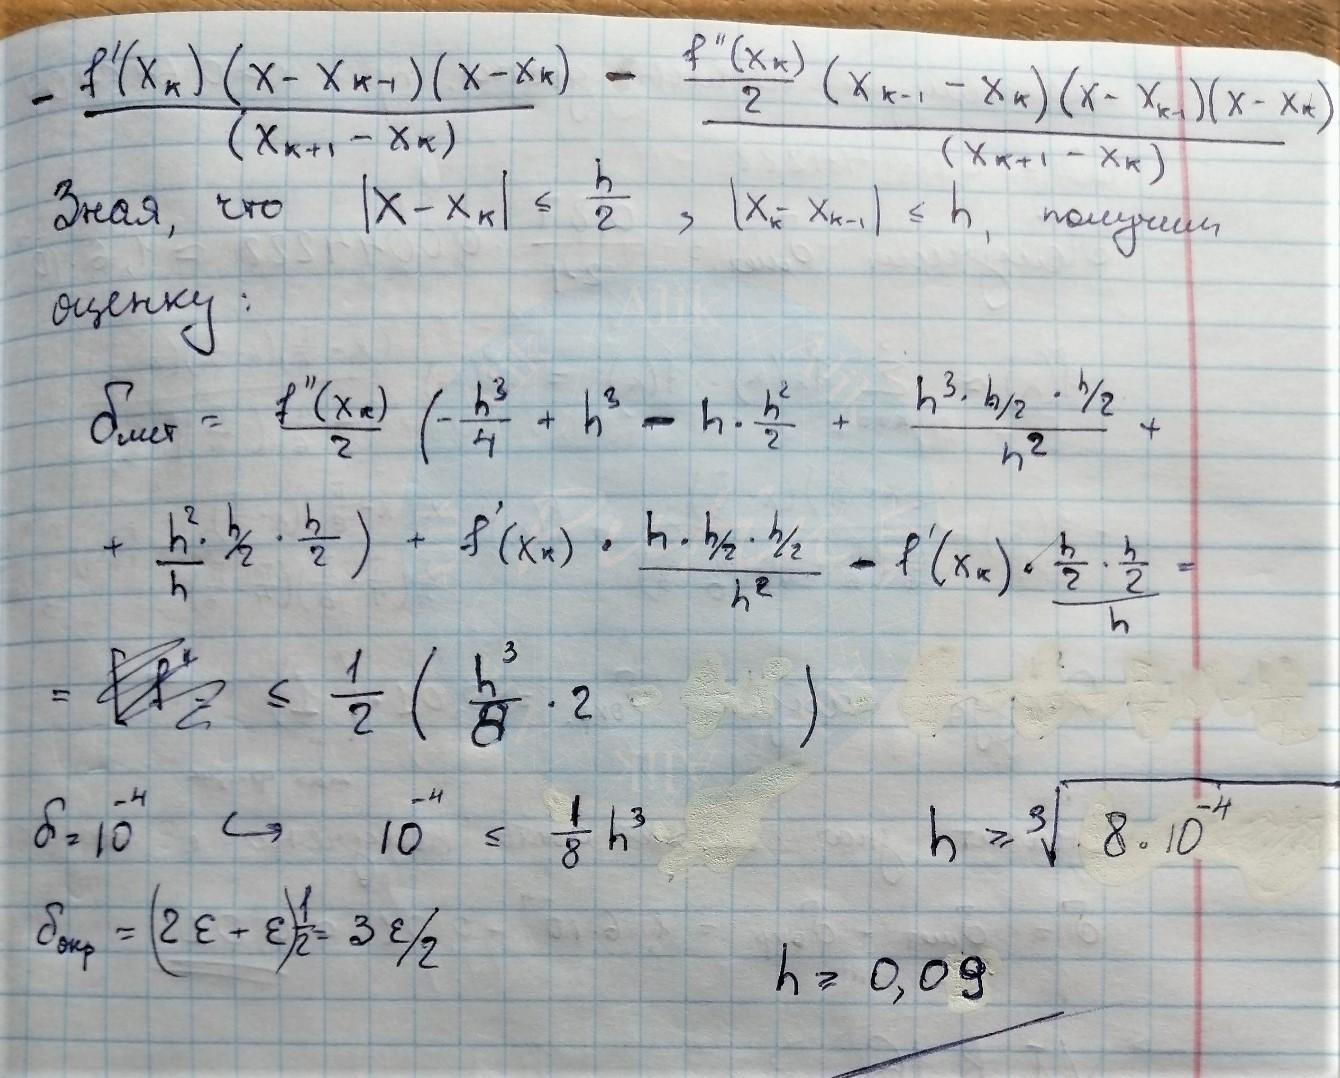 - f'(x_к)(x - x_к-1)(x - x_к) / (x_к+1 - x_к) - f''(x_к)/2 (x_к-1 - x_к)(x - x_к-1)(x - x_к) / (x_к+1 - x_к)
Зная, что |x - x_к| ≤ h/2, |x_к - x_к-1| ≤ h, получим
оценку:
δмет = f''(x_к)/2 (- h³/4 + h³ - h · h²/2 + h³ · h/2 · h/2 / h² +
+ h² · h/2 · h/2 / h) + f'(x_к) · h · h/2 · h/2 / h² - f'(x_к) · h/2 · h/2 / h =
= ≤ 1/2 (h³/8 · 2)
δ = 10⁻⁴ ↪ 10⁻⁴ ≤ 1/8 h³ h ≥ ³√8 · 10⁻⁴
δокр = (2ε + ε)1/2 = 3ε/2
h ≥ 0,09
Alik